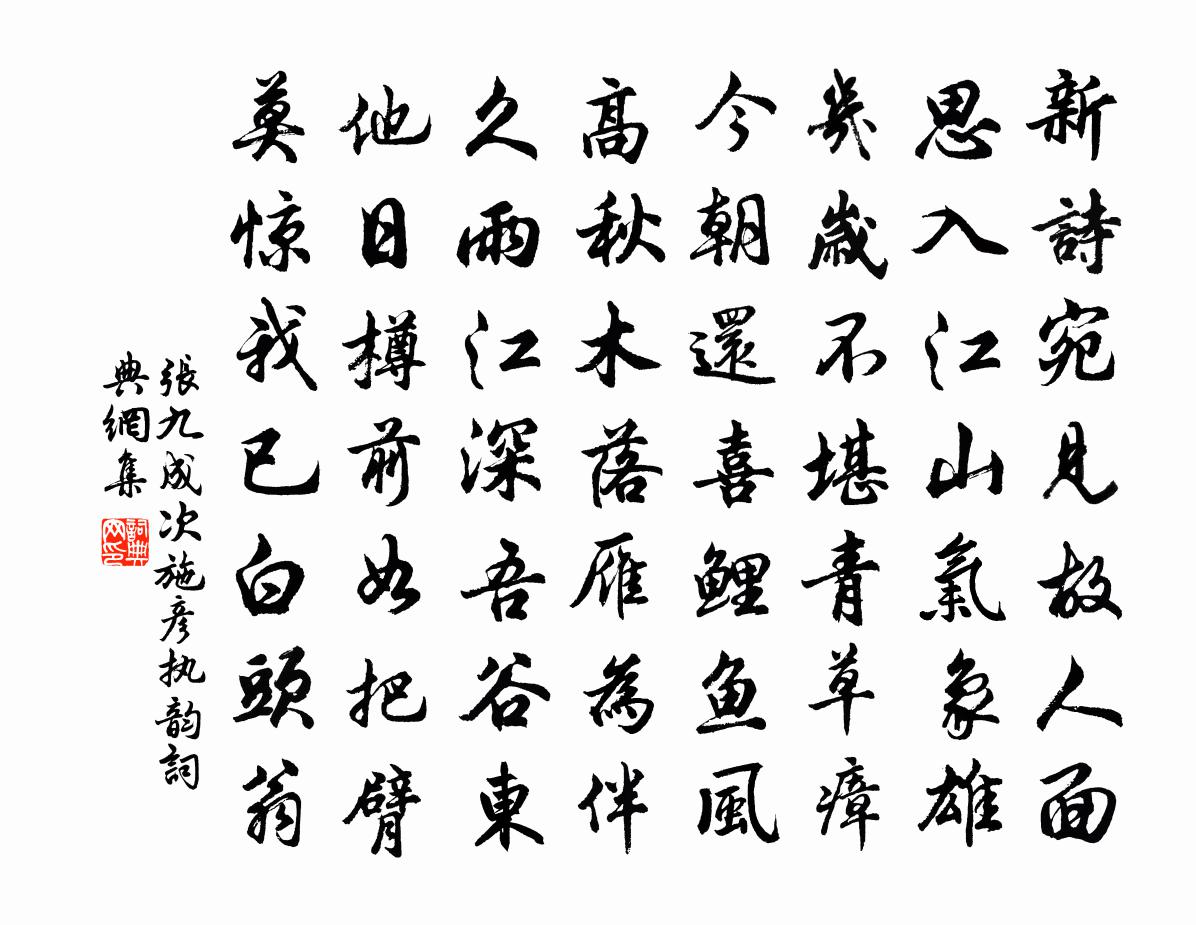 新詩宛見故人面
思入江山氣象雄
幾歲不堪青草瘴
今朝還喜鯉魚風
高秋木落雁為伴
久雨江深吾谷東
他日樽前如把臂
莫惊我已白頭翁
張九成次施彦执韵詞
典網集
詞典
网印